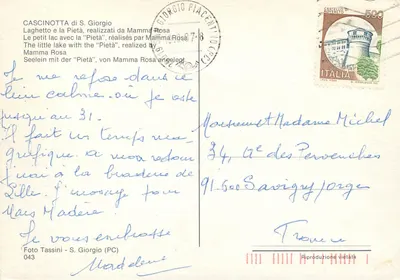 CASCINOTTA di S. Giorgio
Laghetto e la Pietà, realizzati da Mamma Rosa
Le petit lac avec la "Pietà", réalisés par Mamma Rosa
The little lake with the "Pietà", realized by
Mamma Rosa
Seelein mit der "Pietà", von Mamma Rosa angelegt
S. GIORGIO PIACENTINO (PC)
ITALIA
Je me repose dans ce
lieu calme où je reste
jusqu'au 31.
Il fait un temps ma-
gnifique. A mon retour
j'irai à la braderie de
Lille. J'envisage pour
Mars Madère.
Je vous embrasse
Monsieur et Madame Michel
34, Ae des Pervenches
91.600 Savigny/Orge
France
043
Foto Tassini - S. Giorgio (PC)
Riproduzione vietata